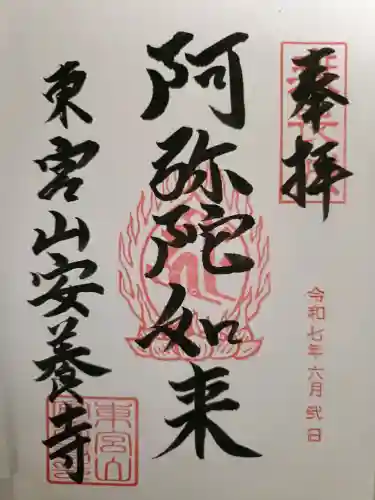 奉拝
令和七年六月弐日
阿弥陀如来
東宮山安養寺